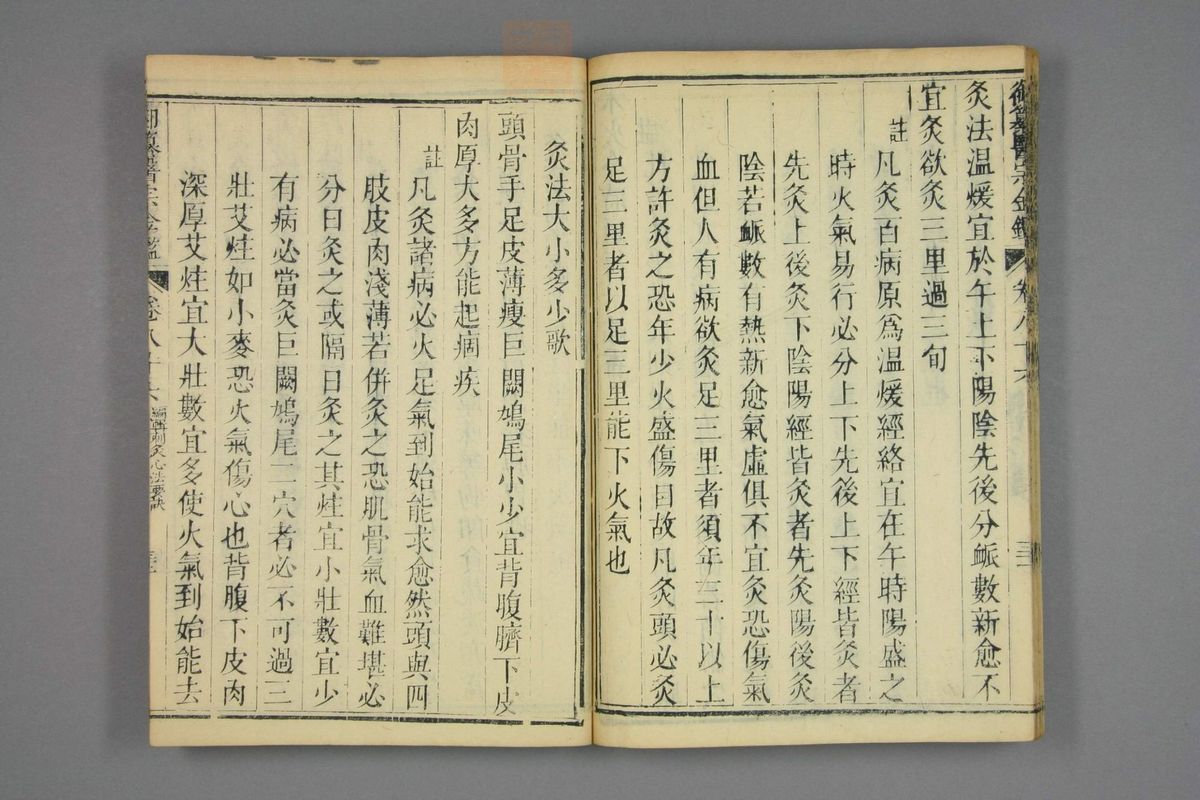 御纂醫宗金鑑 卷八十六 三
灸法溫煖宜於午上下陽陰先後分脈數新愈不
宜灸欲灸三里過三旬
註 凡灸百病原爲溫煖經絡宜在午時陽盛之
時火氣易行必分上下先後上下經皆灸者
先灸上後灸下陰陽經皆灸者先灸陽後灸
陰若脈數有熱新愈氣虛俱不宜灸恐傷氣
血但人有病欲灸足三里者須年三十以上
方許灸之恐年少火盛傷目故凡灸頭必灸
足三里者以足三里能下火氣也
灸法大小多少歌
頭骨手足皮薄瘦巨闕鳩尾小少宜背腹臍下皮
肉厚大多方能起痼疾
註 凡灸諸病必火足氣到始能求愈然頭與四
肢皮肉淺薄若倂灸之恐肌骨氣血難堪必
分日灸之或隔日灸之其炷宜小壯數宜少
有病必當灸巨闕鳩尾二穴者必不可過三
壯艾炷如小麥恐火氣傷心也背腹下皮肉
深厚艾炷宜大壯數宜多使火氣到始能去
編輯刺灸心法要訣